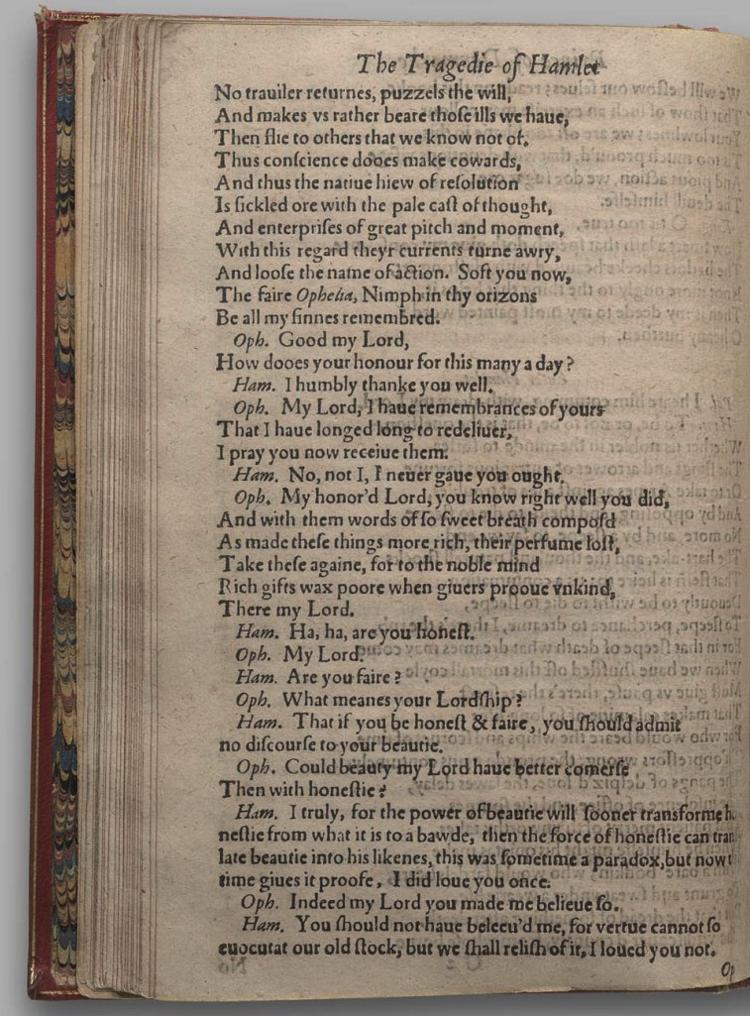 The Tragedie of Hamlet
No trauiler returnes, puzzels the will,
And makes vs rather beare thoſe ills we haue,
Then flie to others that we know not of.
Thus conſcience dooes make cowards,
And thus the natiue hiew of reſolution
Is ſickled ore with the pale caſt of thought,
And enterpriſes of great pitch and moment,
With this regard theyr currents turne awry,
And looſe the name of action. Soft you now,
The faire Ophelia, Nimph in thy orizons
Be all my ſinnes remembred.
Oph. Good my Lord,
How dooes your honour for this many a day?
Ham. I humbly thanke you well.
Oph. My Lord, I haue remembrances of yours
That I haue longed long to redeliuer,
I pray you now receiue them.
Ham. No, not I, I neuer gaue you ought.
Oph. My honor'd Lord, you know right well you did,
And with them words of ſo ſweet breath compoſd
As made theſe things more rich, their perfume loſt,
Take theſe againe, for to the noble mind
Rich gifts wax poore when giuers prooue vnkind,
There my Lord.
Ham. Ha, ha, are you honeſt.
Oph. My Lord.
Ham. Are you faire?
Oph. What meanes your Lordſhip?
Ham. That if you be honeſt & faire, you ſhould admit
no diſcourſe to your beautie.
Oph. Could beauty my Lord haue better comerſe
Then with honeſtie?
Ham. I truly, for the power of beautie will ſooner transforme h
neſtie from what it is to a bawde, then the force of honeſtie can tran
late beautie into his likenes, this was ſometime a paradox, but now t
time giues it proofe, I did loue you once.
Oph. Indeed my Lord you made me belieue ſo.
Ham. You ſhould not haue beleeu'd me, for vertue cannot ſo
euocutat our old ſtock, but we ſhall reliſh of it, I loued you not.
Op